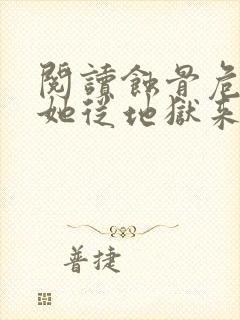 閱讀蝕骨危
她從地獄來
普捷